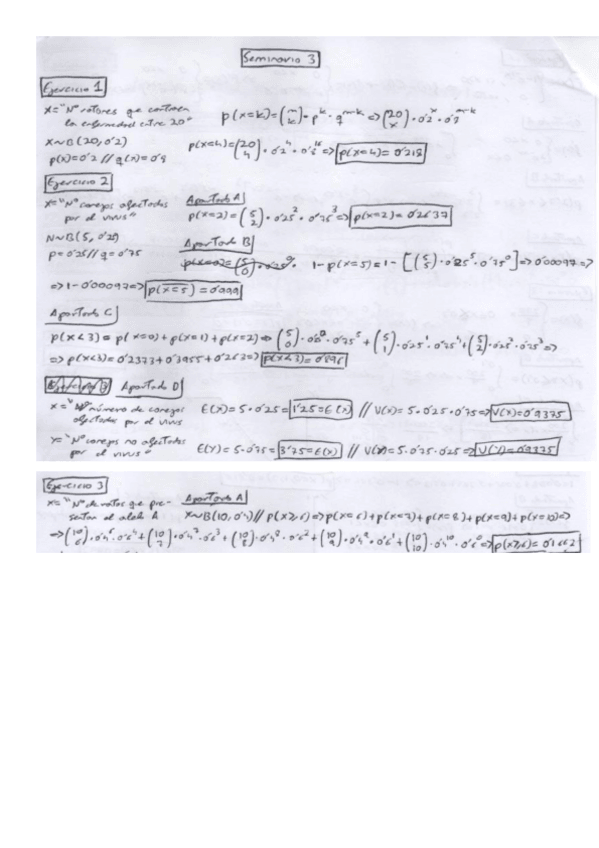 Seminario 3
Ejercicio 1
X="Nº ratones que contraen la enfermedad entre 20"
p(x=k)=(m k)·p^k·q^m-k => (20 x)·0'2^x·0'8^m-k
X~B(20,0'2)
p(x)=0'2 // q(x)=0'8
p(x=4)=(20 4)·0'2^4·0'8^16 => p(x=4)=0'218
Ejercicio 2
X="Nº conejos afectados por el virus"
Apartado A
p(x=2)=(5 2)·0'25^2·0'75^3 => p(x=2)=0'2637
N~B(5,0'25)
p=0'25 // q=0'75
Apartado B
1-p(x=5)=1-[(5 5)·0'25^5·0'75^0] => 0'00097 =>
=> 1-0'00097 => p(x=5)=0'999
Apartado C
p(x<3)=p(x=0)+p(x=1)+p(x=2) => (5 0)·0'25^0·0'75^5+(5 1)·0'25^1·0'75^4+(5 2)·0'25^2·0'75^3 =>
=> p(x<3)=0'2373+0'3955+0'263 => p(x<3)=0'896
Apartado D
X="número de conejos afectados por el virus
E(x)=5·0'25=1'25=E(x) // V(x)=5·0'25·0'75 => V(x)=0'9375
Y="Nº conejos no afectados por el virus"
E(Y)=5·0'75=3'75=E(x) // V(x)=5·0'75·0'25 => V(Y)=0'9375
Ejercicio 3
X="Nº de ratas que presentan el alelo A
Apartado A
X~B(10,0'4) // p(x≥6) => p(x=6)+p(x=7)+p(x=8)+p(x=9)+p(x=10) =>
=> (10 6)·0'4^6·0'6^4+(10 7)·0'4^7·0'6^3+(10 8)·0'4^8·0'6^2+(10 9)·0'4^9·0'6^1+(10 10)·0'4^10·0'6^0 => p(x≥6)=0'1662